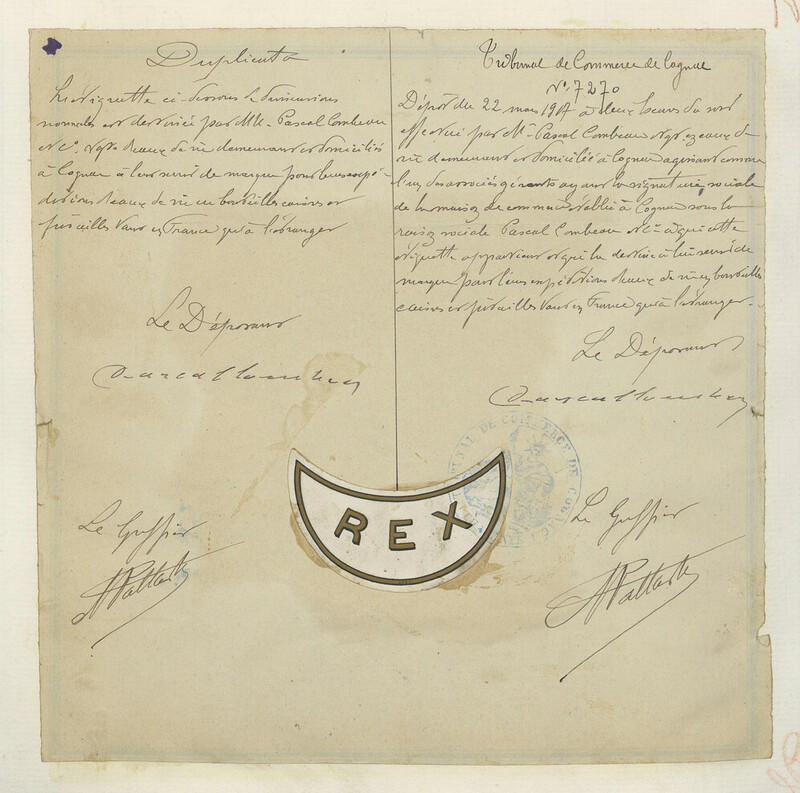 Duplicata
La vignette ci-dessous de dimensions
normales est destinée par MM. Pascal Combeau
et Cie. Négts d'eaux de vie demeurant et domiciliés
à Cognac à leur servir de marque pour leurs expé-
ditions d'eaux de vie en bouteilles caisses et
futailles tant en France qu'à l'étranger
Le Déposant
Pascal Combeau
Le Greffier
Tribunal de Commerce de Cognac
No. 7270
Dépôt du 22 mars 1917 à deux heures du soir
effectué par M. Pascal Combeau négt. en eaux de
vie demeurant et domicilié à Cognac agissant comme
l'un des associés gérants ayant la signature sociale
de la maison de commerce établie à Cognac sous la
raison sociale Pascal Combeau et Cie à qui cette
vignette appartient et qui la destine à lui servir de
marque pour leurs expéditions d'eaux de vie en bouteilles
caisses et futailles tant en France qu'à l'étranger.
Le Déposant
Pascal Combeau
Le Greffier
TRIBUNAL DE COMMERCE DE COGNAC
REX